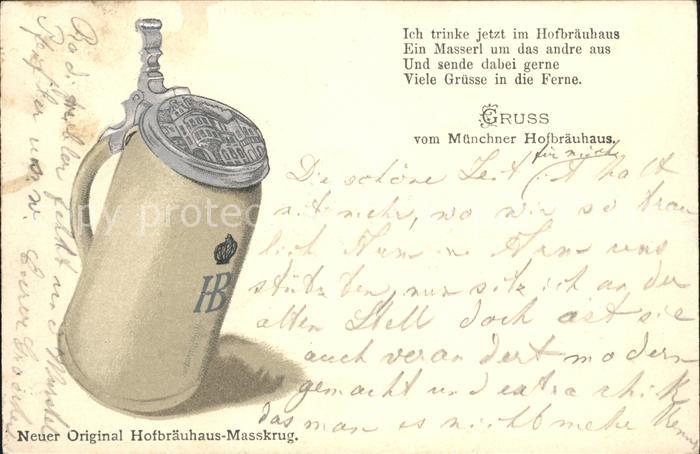 Ich trinke jetzt im Hofbräuhaus
Ein Masserl um das andre aus
Und sende dabei gerne
Viele Grüsse in die Ferne.
GRUSS
vom Münchner Hofbräuhaus.
für mich
Die schöne Zeit ist halt
nit mehr, wo wir so trau
lich Arm in Arm uns
stütz ten, nun sitz ich an der
alten Stell doch ist sie
auch veran dert modern
gemacht und extra schick
das man es nicht mehr kennt
HB
Neuer Original Hofbräuhaus-Masskrug.
fehlt und
u.s.w.